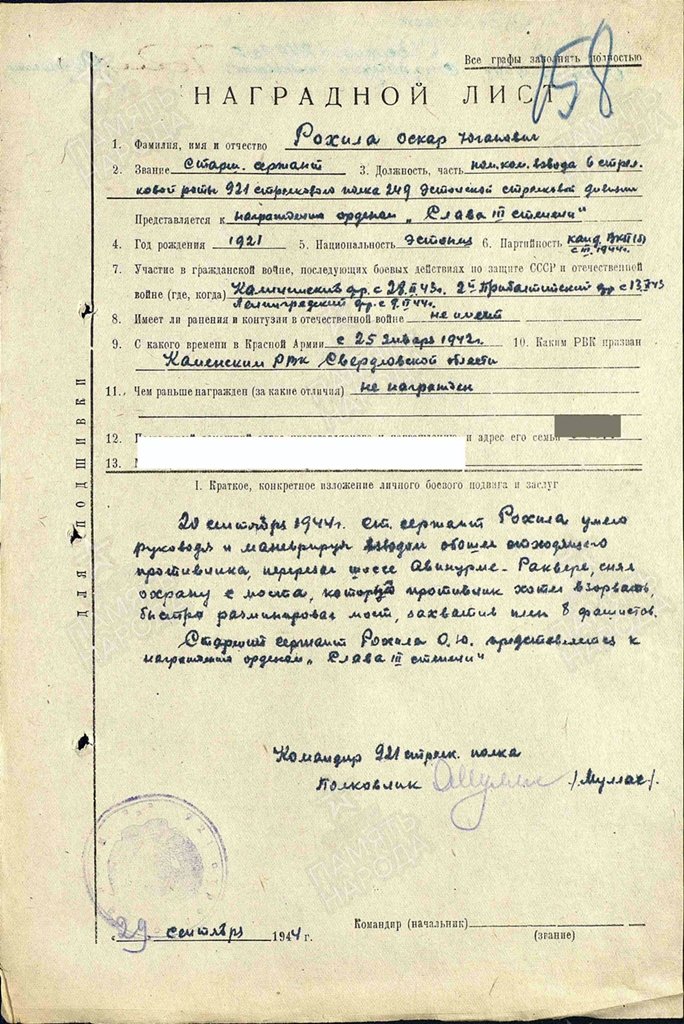 Все графы заполнять полностью
158
НАГРАДНОЙ ЛИСТ
1. Фамилия, имя и отчество Рохила Оскар Юганович
2. Звание Старш. сержант 3. Должность, часть пом. ком. взвода 6 стрел-
ковой роты 921 стрелкового полка 249 Эстонской стрелковой дивизии
Представляется к награждению орденом „Слава III степени"
4. Год рождения 1921 5. Национальность Эстонец 6. Партийность канд. ВКП(б)
с III. 1944г.
7. Участие в гражданской войне, последующих боевых действиях по защите СССР и отечественной
войне (где, когда) Калининский фр. с 2ой Прибалтийский фр с
Ленинградский фр. с
8. Имеет ли ранения и контузии в отечественной войне не имеет
9. С какого времени в Красной Армии с 25 января 1942г. 10. Каким РВК призван
Каменским РВК Свердловской области
11. Чем раньше награжден (за какие отличия) не награжден
12. и адрес его семьи
13.
I. Краткое, конкретное изложение личного боевого подвига и заслуг
20 сентября 1944г. ст. сержант Рохила умело
руководя и маневрируя взводом обошел отходящего
противника, перерезал шоссе Авинурме-Раквере, снял
охрану с моста, который противник хотел взорвать,
быстро разминировал мост, захватив плен 8 фашистов.
Старший сержант Рохила О.Ю. представляется к
награждению орденом „Слава III степени"
Командир 921 стрелк. полка
Полковник /Муллас/.
29 сентября 1944 г.
Командир (начальник)
(звание)
ДЛЯ ПОДШИВКИ
ПАМЯТЬ НАРОДА